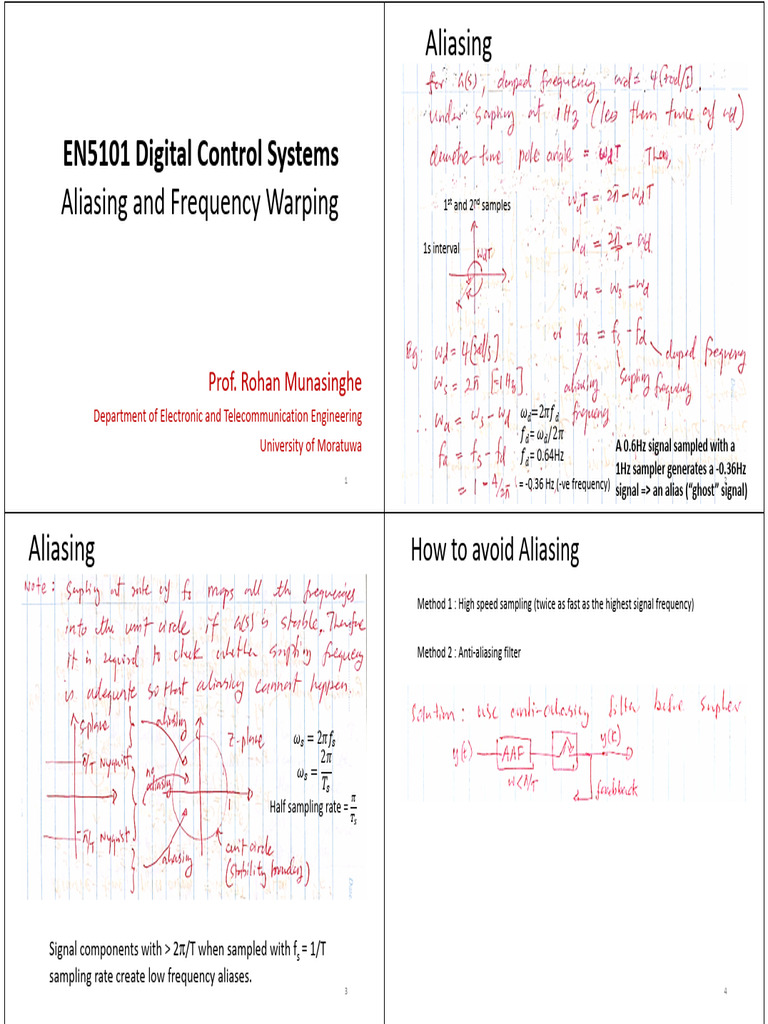 EN5101 Digital Control Systems
Aliasing and Frequency Warping
Prof. Rohan Munasinghe
Department of Electronic and Telecommunication Engineering
University of Moratuwa
1
Aliasing
for G(s), damped frequency ωd = 4 (rad/s).
under sapling at 1Hz (less them twice of ωd)
discrete-time pole angle = ωdT Then,
1st and 2nd samples
1s interval
ωdT
x
ωaT = 2π - ωdT
ωa = 2π/T - ωd
ωa = ωs - ωd
or fa = fs - fd
damped frequency
sapling frequency
aliasing frequency
Eg: ωd = 4[rad/s]
ωs = 2π [=1Hz].
∴ ωa = ωs - ωd
fa = fs - fd
= 1 - 4/2π
ωd = 2πfd
fd = ωd/2π
fd = 0.64Hz
= -0.36 Hz (-ve frequency)
A 0.6Hz signal sampled with a
1Hz sampler generates a -0.36Hz
signal => an alias ("ghost" signal)
Aliasing
Note: Sapling at rate of fs maps all th frequencies
into the unit circle if G(s) is stable. Therefore
it is required to check whether sapling frequency
is adequate so that aliasing cannot happen.
S-plane
aliasing
Z-plane
π/T Nyquist
no aliasing
1
-π/T Nyquist
aliasing
unit circle
(stability boundary)
ωs = 2πfs
ωs = 2π/Ts
Half sampling rate = π/Ts
Signal components with > 2π/T when sampled with fs = 1/T
sampling rate create low frequency aliases.
3
How to avoid Aliasing
Method 1 : High speed sampling (twice as fast as the highest signal frequency)
Method 2 : Anti-aliasing filter
Solution: use anti-aliasing filter before sapler
y(t) AAF y(k)
ω<π/T feedback
4